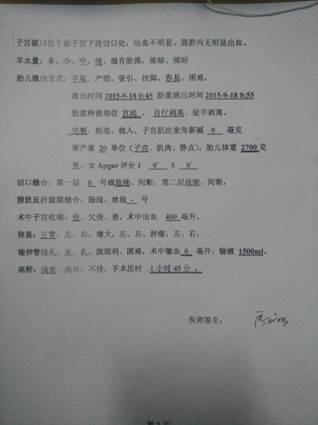 子宫破口位于原子宫下段切口处，出血不明显，腹腔内无明显出血。
羊水量：多、少、中、清、混有胎粪、淡綠、深綠
胎儿娩出方式：手取、产钳、吸引、拉脚、容易、困难。
娩出时间 2015-9-18 0:45 胎盘娩出时间 2015-9-18 0:55
胎盘种植部位 宫底 ， 自行剥离、徒手剥离。
完整、粘连、植入、子宫肌注麦角新碱 0 毫克
催产素 20 单位（子宫、肌肉、静点）、胎儿体重 2700 克
男、女 Apgar 评分 1 0' 5 0'
切口缝合：第一层 0 号线连续、间断，第二层连续、间断，
膀胱反折腹膜缝合，肠线、丝线 - 号
术中子宫收缩，佳、欠佳、差，术中出血 400 毫升。
卵巢：正常、左、右，增大，左、右，肿瘤，左、右。
输卵管结扎：未、扎，腹顺利、困难，术中输血 0 毫升；输液 1500ml。
麻醉：满意、尚可、不佳，手术历时 1 小时 45 分 。
医师签名：